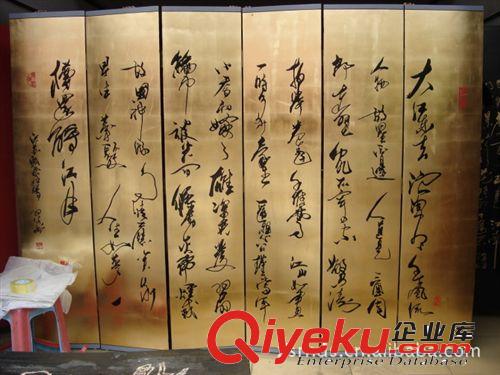 大江東去 浪淘尽 千古風流
人物 故壘西邊 人道是 三國周
郎赤壁 亂石穿空 驚濤
拍岸 卷起千堆雪 江山如畫
一時多少豪傑 遙想公瑾當年
小喬初嫁了 雄姿英發 羽扇
綸巾 談笑間 檣櫓灰飛煙滅
故國神遊 多情應笑我
早生華髮 人生如夢 一
樽還酹江月
Qiyeku.com 企业库
Enterprise Database